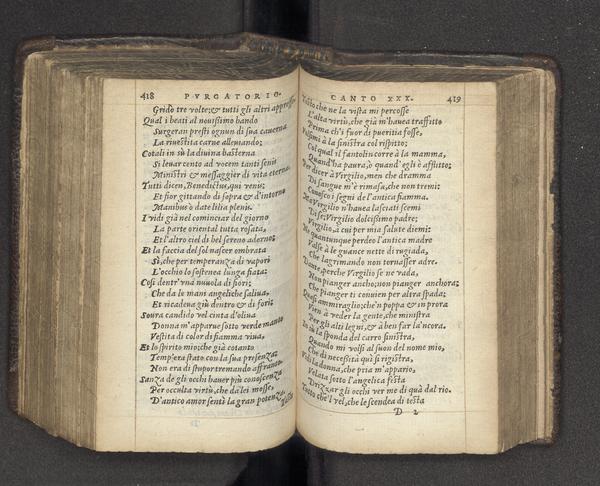 418 PVRGATORIO.
Gridò tre volte;& tutti gli altri appresso.
Qual i beati al nouissimo bando
Surgeran presti ognun di sua cauerna
La riuestita carne alleuiando;
Cotali in sù la diuina basterna
Si leuar cento ad vocem tanti senis
Ministri & messaggier di vita eterna.
Tutti dicen, Benedictus, qui venis;
Et fior gittando di sopra & d'intorno
Manibus ò date lilia plenis.
I vidi già nel cominciar del giorno
La parte oriental tutta rosata,
Et l'altro ciel di bel sereno adorno;
Et la faccia del sol nascer ombrata
Sì, che per temperanza di vapori
L'occhio lo sostenea lunga fiata;
Cosi dentr'vna nuuola di fiori;
Che da le mani angeliche saliua,
Et ricadeua giù dentro & di fori;
Soura candido vel cinta d'oliua
Donna m'apparue sotto verde manto
Vestita di color di fiamma viua.
Et lo spirito mio; che già cotanto
Tempera stato con la sua presenza;
Non era di stupor tremando affranto
Sanza de gli occhi hauer più conoscenza
Per occulta virtù, che da lei mosse,
D'antico amor sentì la gran potenza.
Tosto
CANTO XXX. 419
Tosto che ne la vista mi percosse
L'alta virtù, che già m'hauea trafitto
Prima ch'i fuor di pueritia fosse,
Volsimi à la sinistra col rispitto;
Col qual il fantolin corre à la mamma,
Quand'ha paura, ò quand'egli è afflitto;
Per dicer à Virgilio, men che dramma
Di sangue m'è rimasa, che non tremi:
Conosco i segni de l'antica fiamma.
Ma Virgilio n'hauea lasciati scemi
Di se; Virgilio dolcissimo padre;
Virgilio, a cui per mia salute diemi:
Ne quantunque perdeo l'antica madre
Valse à le guance nette di rugiada,
Che lagrimando non tornasser adre.
Dante, perche Virgilio se ne vada,
Non pianger ancho; non pianger anchora;
Che pianger ti conuien per altra spada:
Quasi ammiraglio; che'n poppa & in prora
Vien à veder la gente, che ministra
Per gli alti legni, & à ben far la'ncora.
In sù la sponda del carro sinistra,
Quando mi volsi al suon del nome mio,
Che di necessità quì si rigistra,
Vidi la donna, che pria m'appario,
Velata sotto l'angelica festa
Drizzar gli occhi ver me di quà dal rio.
Tutto che'l vel, che le scendea di testa
D 2